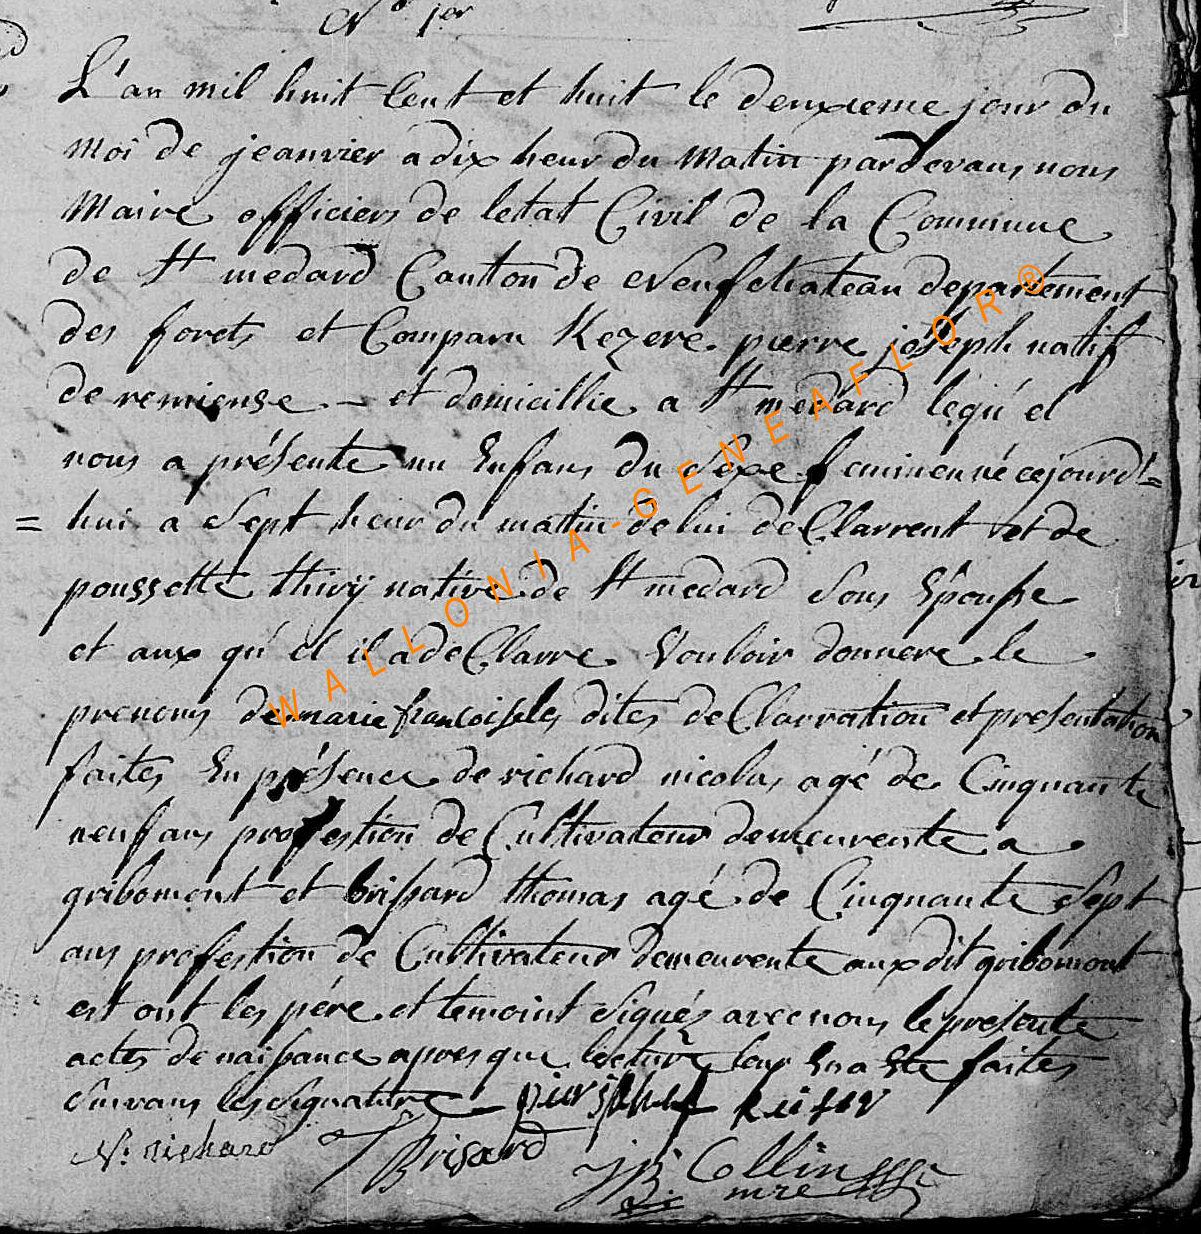 N° 1er
L'an mil huit Cent et huit le deuxieme jour du
moi de jeanvier a dix heur du matin pardevans nous
Maire officiers de letat Civil de la Commune
de St medard Canton de Neufchateau departement
des forets et Comparu Kezere pierre joseph natif
de remiense - et domicillie a St medard lequ'el
nous a présente un Enfans du Sexe feminen né cejourd'=
= hui a Sept heur du matin de lui deClarrent et de
poussette thiry native de St medard Sons Epouse
et aux qu'el il a deClarre Vouloir donnere le
prenoms de marie francoise les dites deClarration et presentation
faites En présence de richard nicolas agé de Cinquante
neuf ans profestion de Cultivateur demeurente a
gribomont et brissard thomas agé de Cinquante Sept
ans profestion de Cultivateur demeurente aux dit gribomont
est ont les pére et temoint Signéz avec nous le presente
actes de naissance apres que lecture leur En a Ete faites
Suivans les Signature
N: richard T Brisard JB: Collin
mre
WALLONIA-GENEAFLOR®